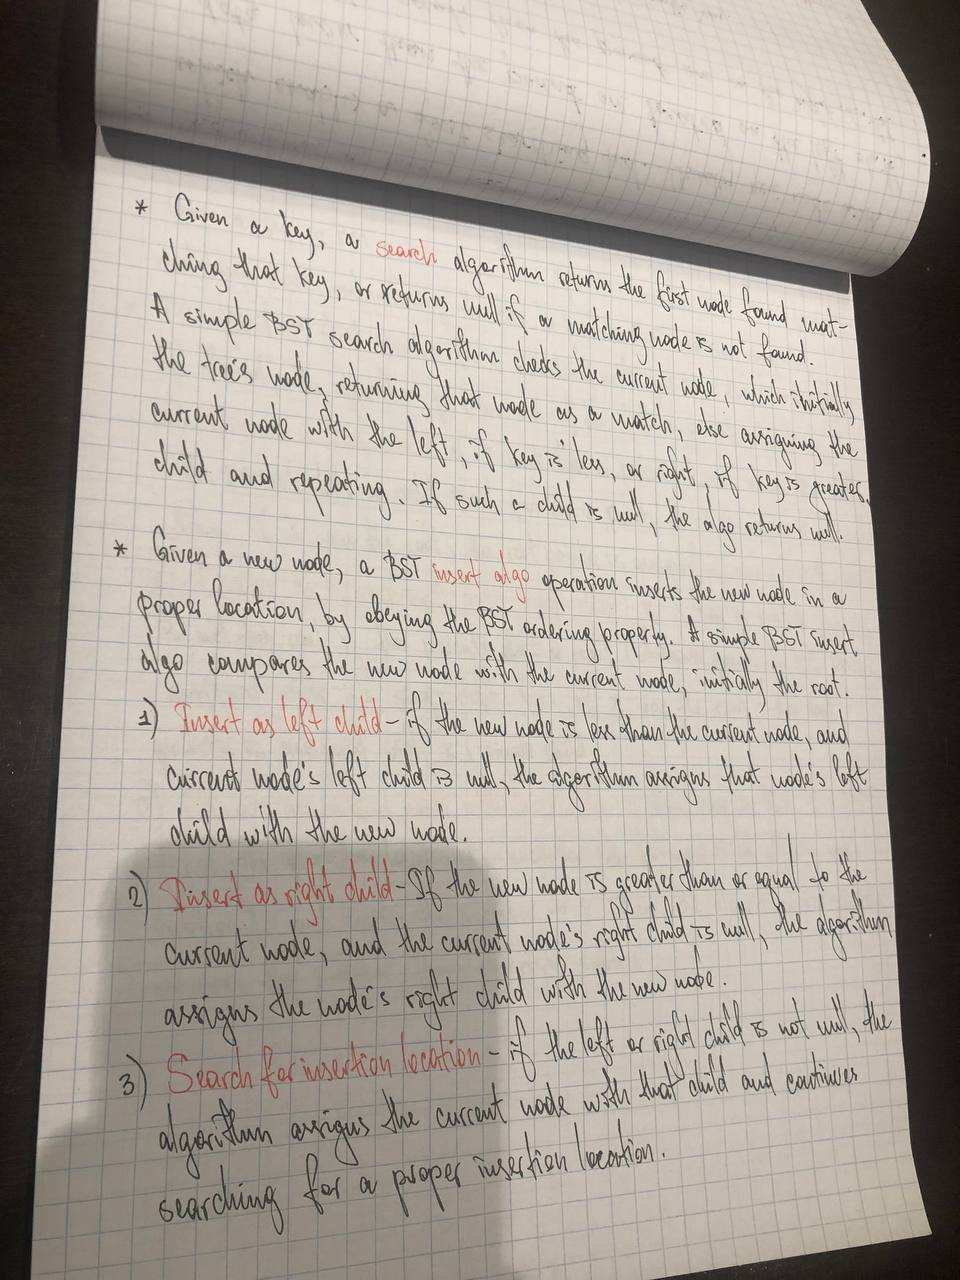 * Given a key, a search algorithm returns the first node found mat-
ching that key, or returns null if a matching node is not found.
A simple BST search algorithm checks the current node, which initially
the tree's node, returning that node as a match, else assigning the
current node with the left, if key is less, or right, if key is greater,
child and repeating. If such a child is null, the algo returns null.
* Given a new node, a BST insert algo operation inserts the new node in a
proper location, by obeying the BST ordering property. A simple BST insert
algo compares the new node with the current node, initially the root.
1) Insert as left child - if the new node is less than the current node, and
current node's left child is null, the algorithm assigns that node's left
child with the new node.
2) Insert as right child - If the new node is greater than or equal to the
current node, and the current node's right child is null, the algorithm
assigns the node's right child with the new node.
3) Search for insertion location - if the left or right child is not null, the
algorithm assigns the current node with that child and continues
searching for a proper insertion location.